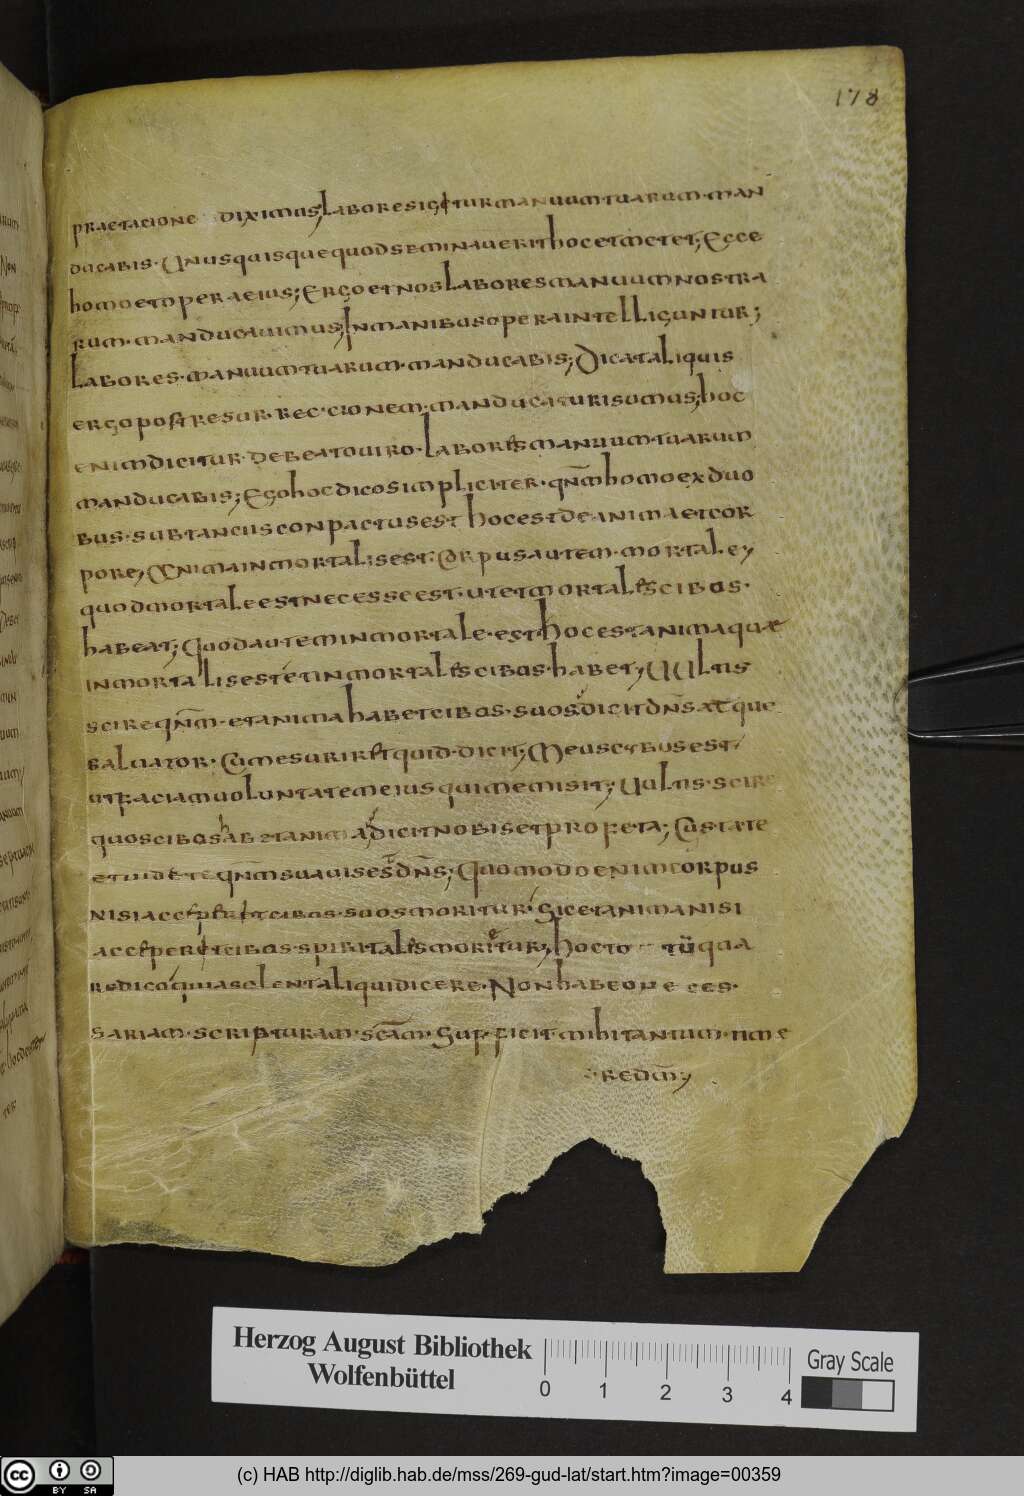 178
praetacione diximus; labores igitur manuum tuarum · man
ducabis · Unusquisque quod seminaverit hoc et metet; Ecce
homo et opera eius; Ergo et nos labores manuum nostra
rum · manducavimus; In manibus opera intelliguntur;
labores · manuum tuarum · manducabis; Dicat aliquis
ergo post resur · rec·cionem · manducaturi sumus; hoc
enim dicitur · de beato viro · labores manuum · tuarum
manducabis; Ego hoc dico simpliciter · qnm homo ex duo
bus · subtanciis conpactus est hoc est de anima et cor
pore; Anima inmortalis est · Corpus autem · mortale;
quod mortale est necesse est · ut et mortales cibos ·
habeat; Quod autem inmortale · est hoc est anima quae
inmortalis est et inmortales cibos · habet; Vultis
scire qnm · et anima habet cibos · suos dicit dns atque
salvator · Cum esuriret quid · dicit; Meus cibus est
ut faciam voluntatem eius qui me misit; Vultis · scire
quos cibos hab& anima dicit nobis et profeta; Gustate
et videte qnm suavis est dns; Quomodo enim corpus
nisi acceperit cibos · suos moritur · Sic et anima nisi
acceperit cibos · spiritales moritur; hoc to
re dico quia se lental liqui dicere · Non habeo neces ·
sariam · scripturam · scam · Sufficit mihi tantum · time
re dm;
Herzog August Bibliothek
Wolfenbüttel
0 1 2 3 4
Gray Scale
cc BY SA
(c) HAB http://diglib.hab.de/mss/269-gud-lat/start.htm?image=00359